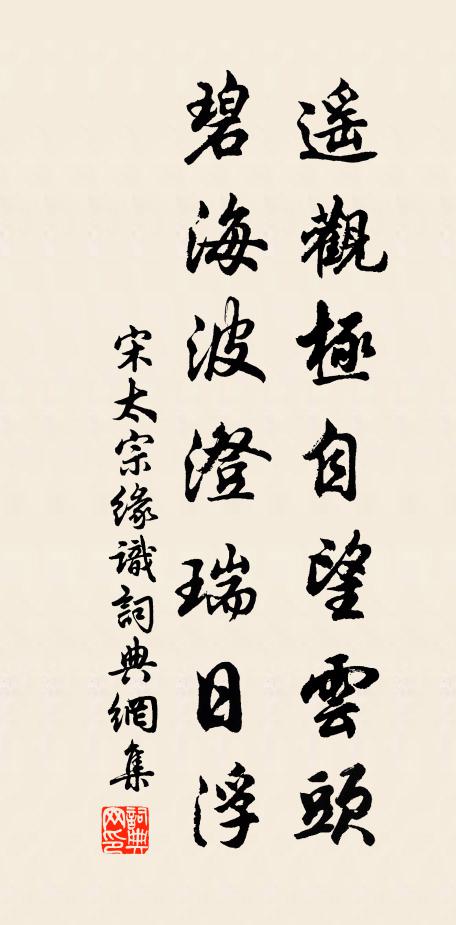 遥觀極自望雲頭
碧海波澄瑞日浮
宋太宗緣識詞典網集
詞典网印